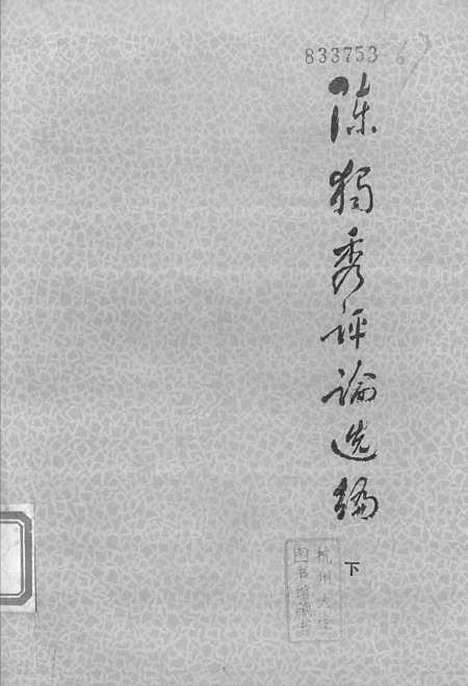 833753
陈独秀评论选编
下
杭州大学
图书馆藏书